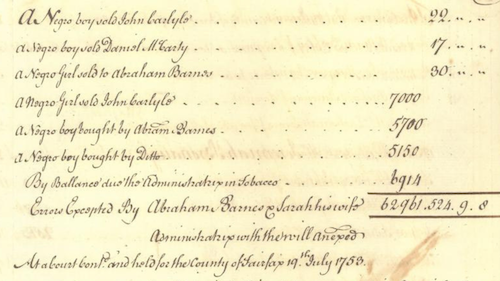 A Negro boy sold John Carlyle . . . . . . 22 " "
A Negro boy sold Daniel McCarty . . . . . . 17 " "
A Negro Girl sold to Abraham Barnes . . . . . . 30 " "
A Negro Girl sold John Carlyle . . . . . . 7000
A Negro boy bought by Abram Barnes . . . . . . 5700
A Negro boy bought by Ditto . . . . . . 5150
By Ballance due the Administratrix in Tobacco . . 6914
Errors Excepted By Abraham Barnes & Sarah his wife 62961. 524. 9. 8
Administratrix with the will Anexed
At a Court Contd. and held for the County of Fairfax 19th July 1753.